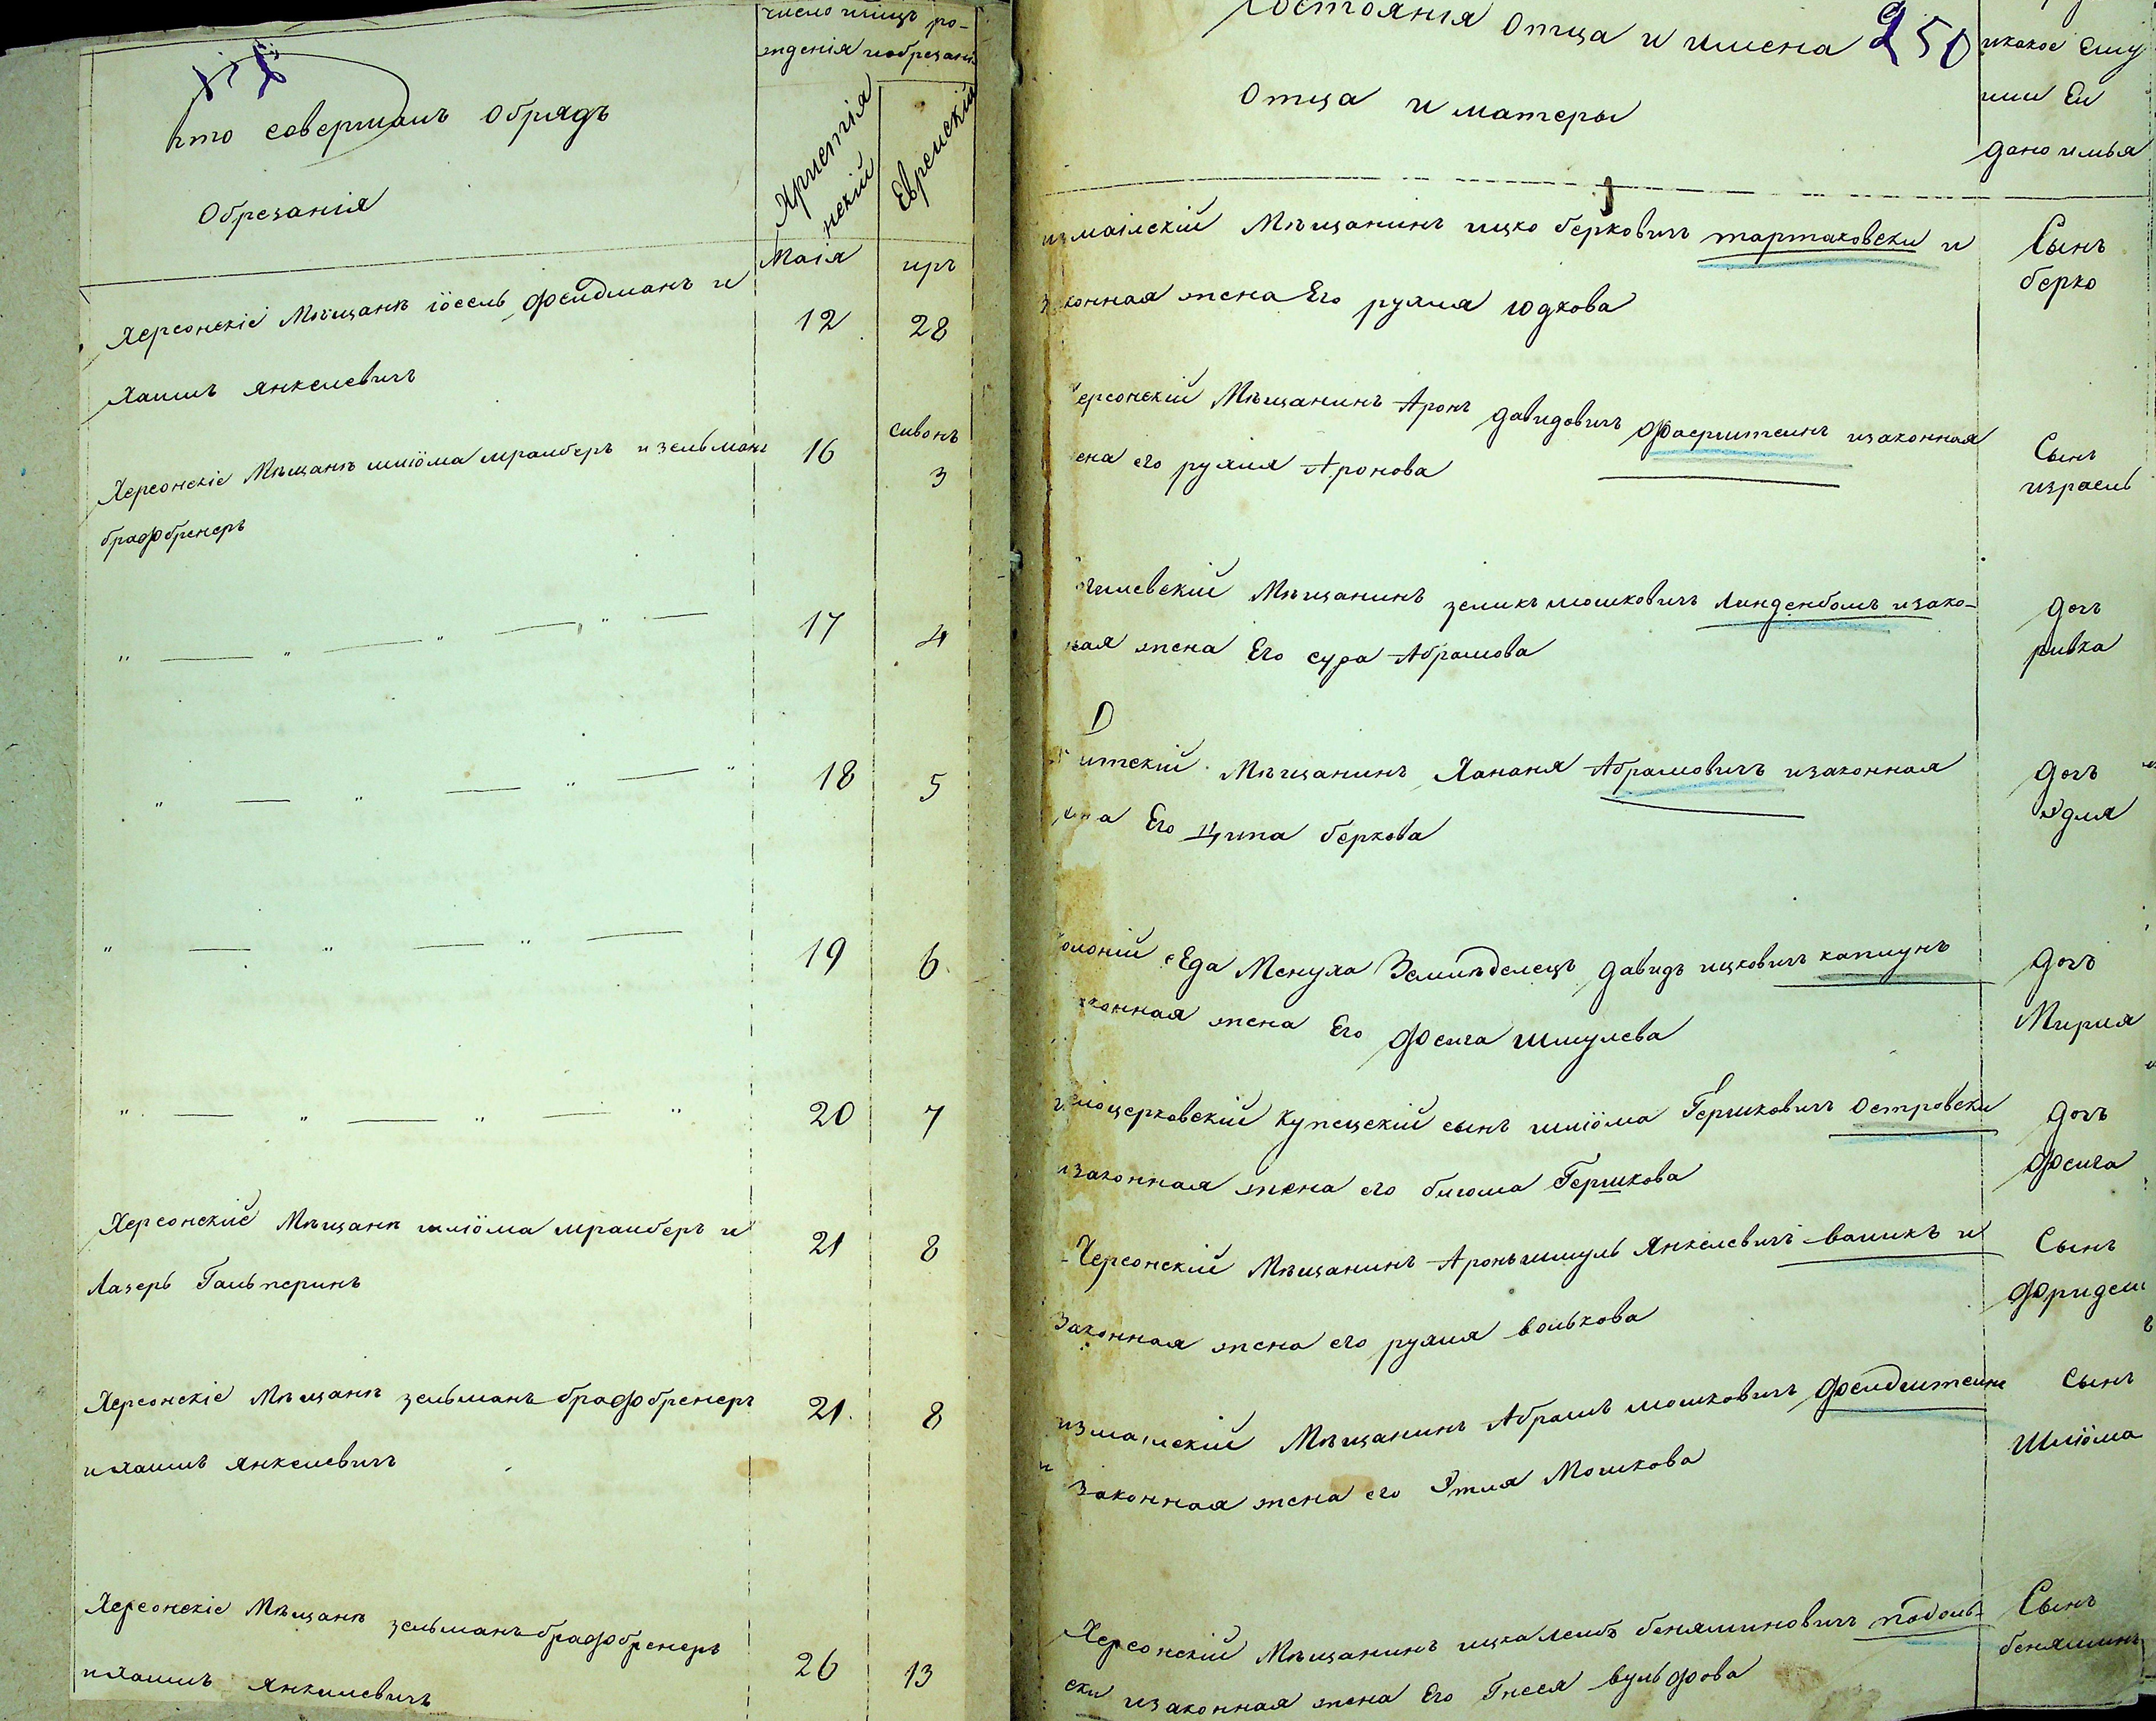 кто совершалъ обрядъ
Обрезанія
число мѣсяцъ ро-
жденія и обрезанія
Христіянскій
Еврейскій
Маія
иръ
Херсонскіе Мѣщанѣ Іосель Фельдманъ и
Хаимъ Янкелевичъ
12
28
сивонъ
Херсонскіе Мѣщанѣ шліома мрамберъ и зельманъ
брафбренеръ
16
3
17
4
18
5
19
6
20
7
Херсонскіе Мѣщанѣ шліома мрамберъ и
Лазеръ Гальперинъ
21
8
Херсонскіе Мѣщанѣ зельманъ брафбренеръ
и хаимъ янкелевичъ
21
8
Херсонскіе Мѣщанѣ зельманъ брафбренеръ
и хаимъ Янкелевичъ
26
13
Состоянія Отца и имена 250
Отца и матеры
какое Ему
или Ей
дано имья
измаілскій Мѣщанинъ ицко берковичъ тартаковски и
законная жена Его рухля юдкова
Сынъ
берко
Херсонскій Мѣщанинъ Аронъ давидовичъ Фаерштеинъ изаконная
жена его рухля Аронова
Сынъ
израель
огилевскій Мѣщанинъ зеликъ мошковичъ линденбомъ изако-
ная жена Его сура Абрамова
дочъ
ривка
итскій Мѣщанинъ Хананя Абрамовичъ изаконная
жена Его Ципа беркова
дочъ
Эдля
колоній сЕда Менуха Земледелецъ давидъ ицковичъ каплунъ
конная жена Его Феига шмулева
дочъ
Мирия
елоцерковскій купецкій сынъ шліома Гершковичъ Островски
изаконная жена его блюма Гершкова
дочъ
Феига
Херсонскій Мѣщанинъ Аронъ шмуль Янкелевичъ валикъ и
Законная жена его рухля волькова
Сынъ
Фридель
измаилскій Мѣщанинъ Абрамъ мошковичъ Фельдштеинъ
и Законная жена его Этля Мошкова
Сынъ
Шліома
Херсонскій Мѣщанинъ ицкалеибъ беняминовичъ подоль-
ски изаконная жена Его Гнеся вульфова
Сынъ
беняминъ